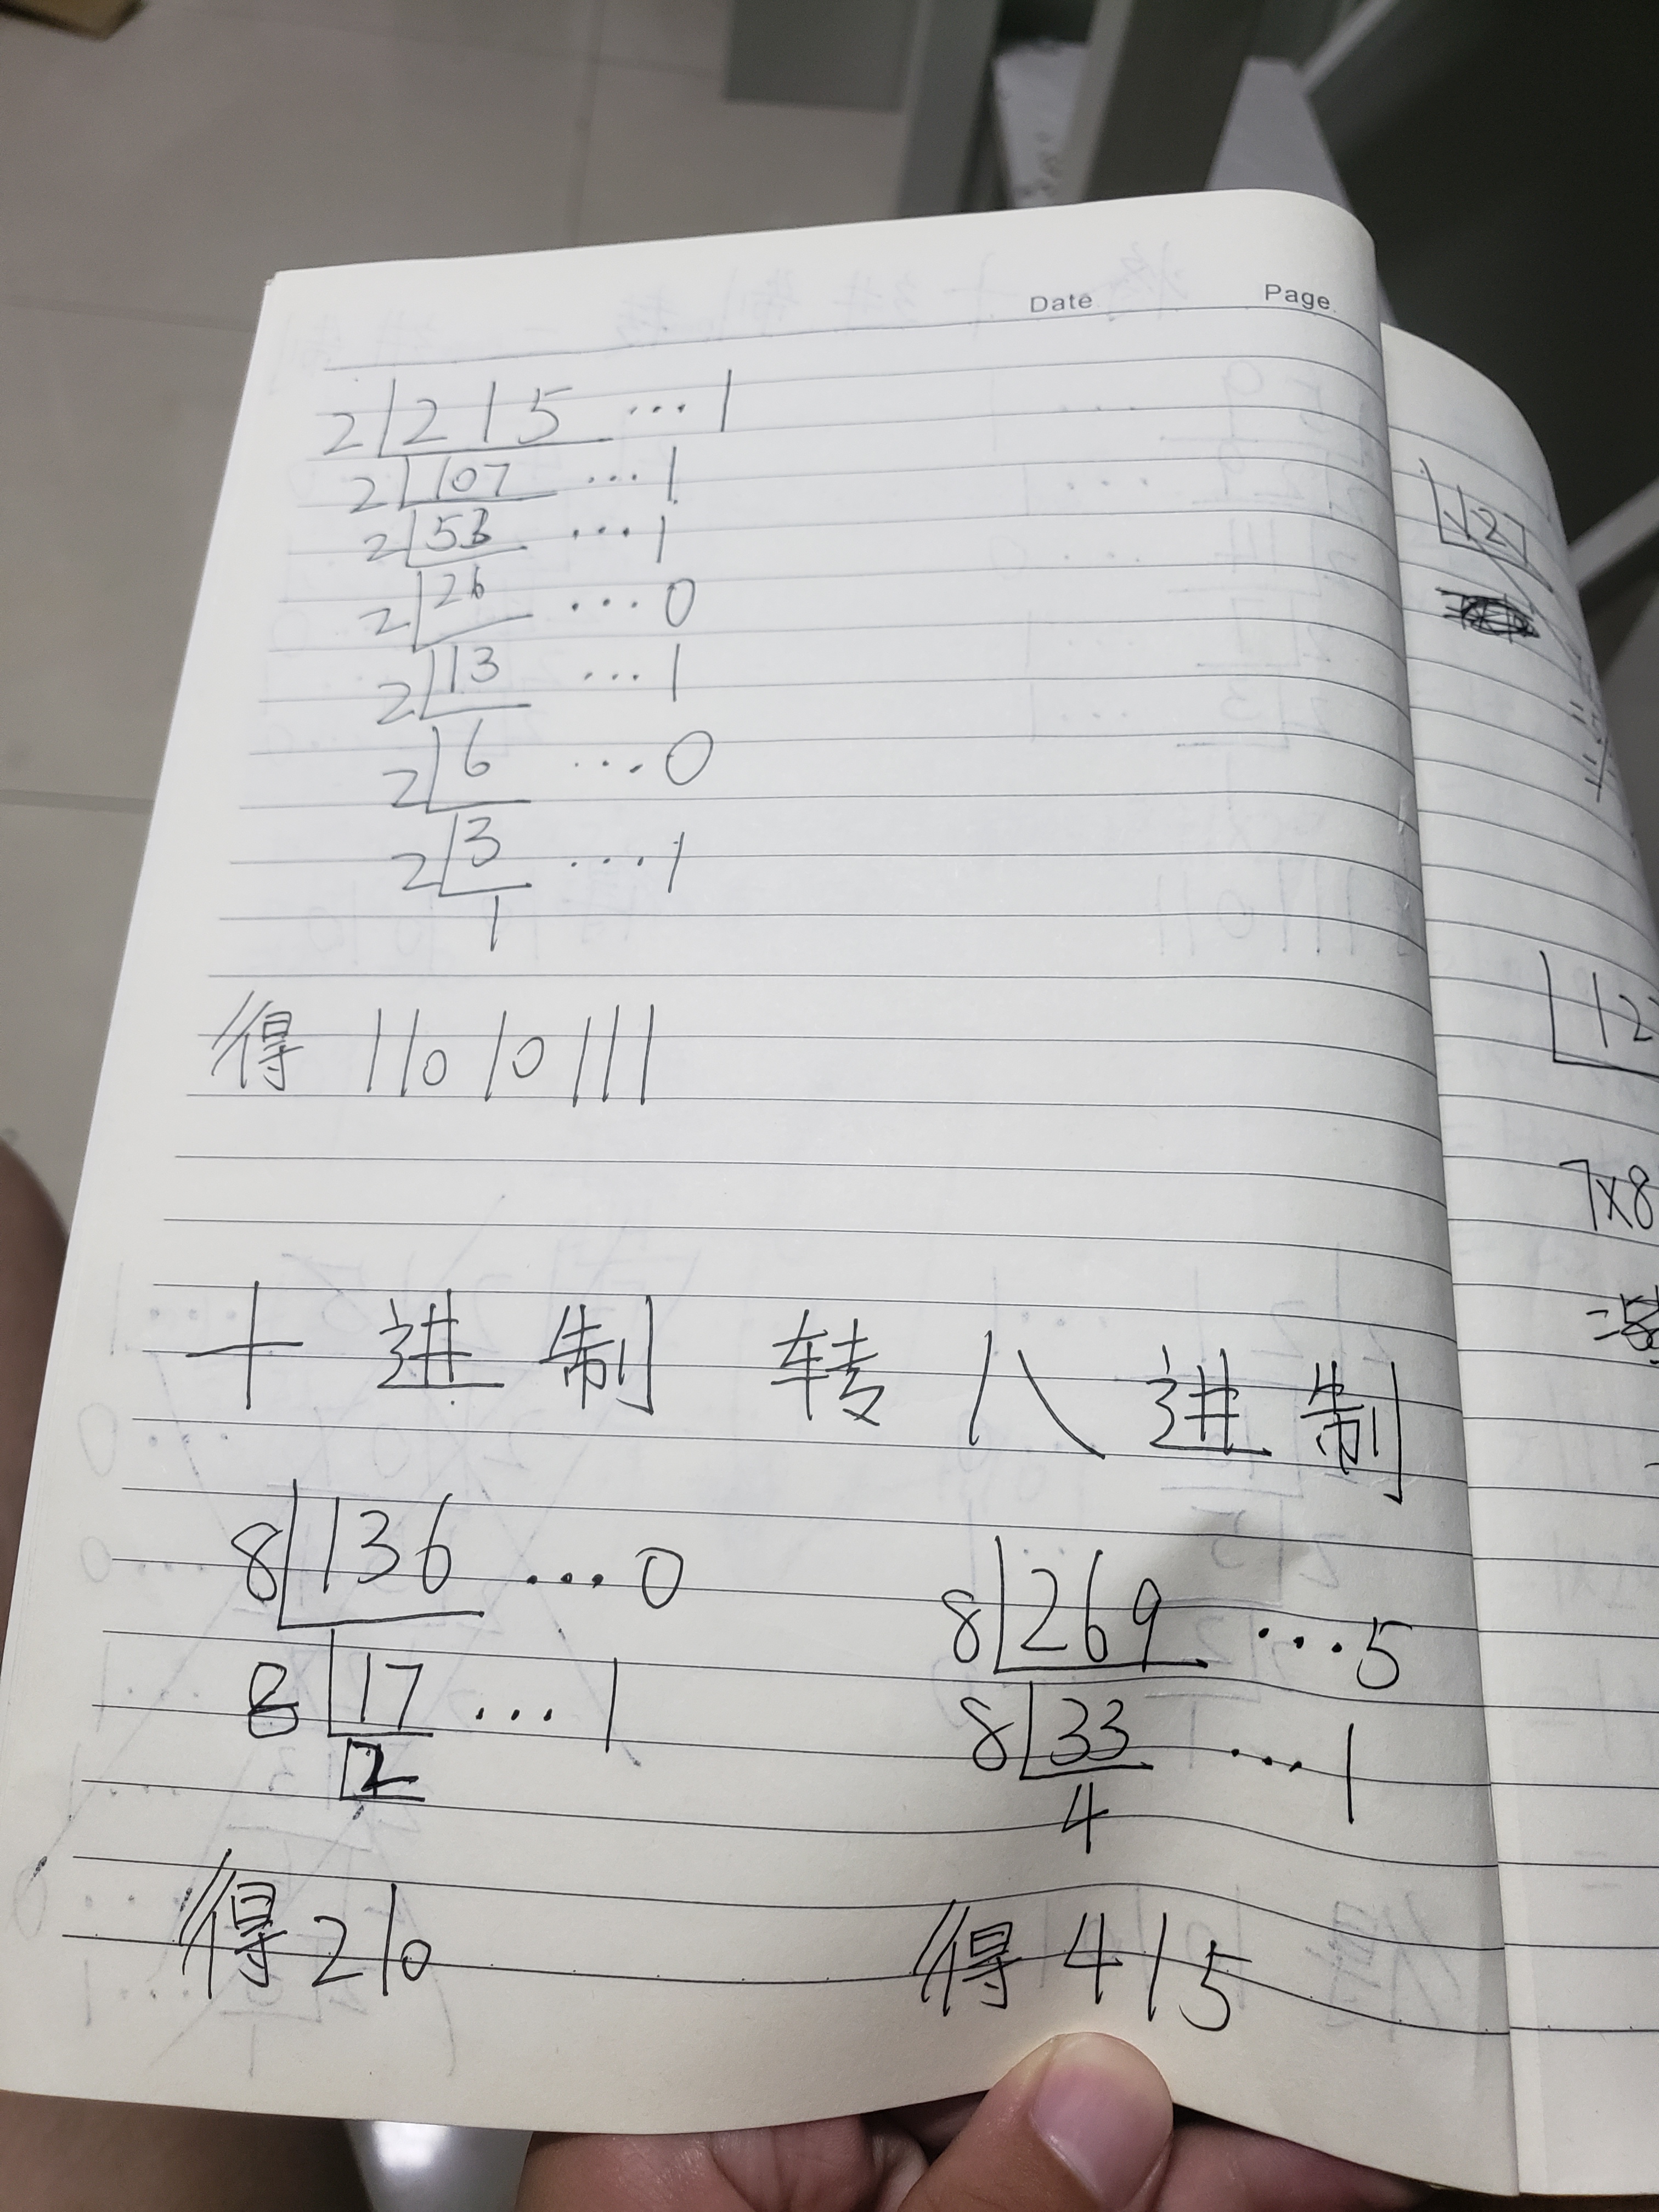 Date Page
2 215 ... 1
2 107 ... 1
2 53 ... 1
2 26 ... 0
2 13 ... 1
2 6 ... 0
2 3 ... 1
1
得 11010111
十进制 转八进制
8 136 ... 0
8 17 ... 1
2
得 210
8 269 ... 5
8 33 ... 1
4
得 415
127
12
7×8